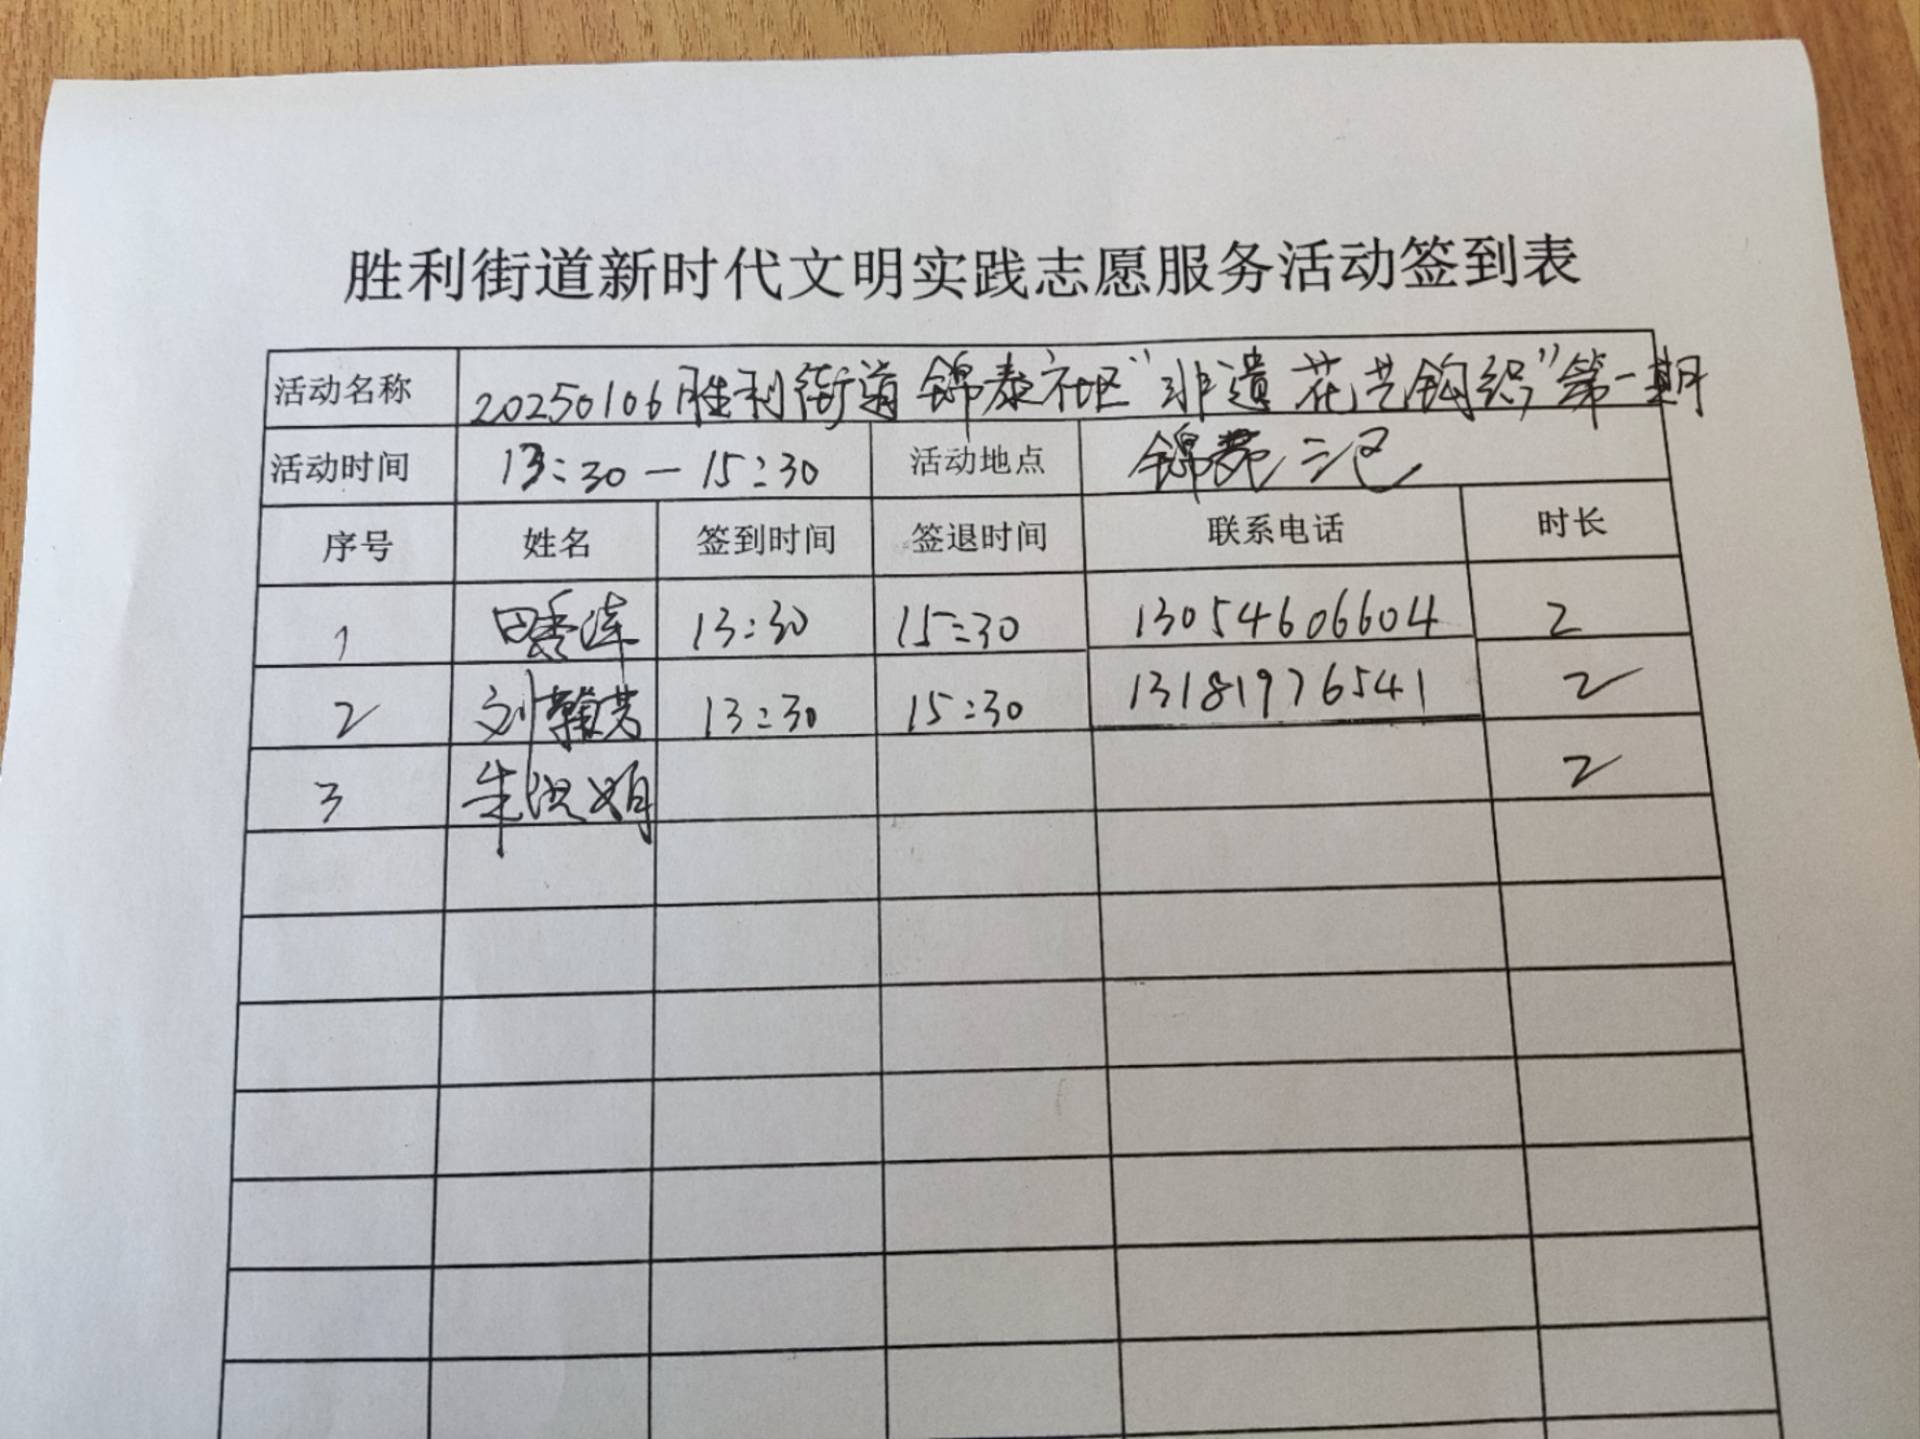 胜利街道新时代文明实践志愿服务活动签到表
活动名称 20250106胜利街道锦泰社区“非遗花艺钩织”第一期
活动时间 13:30—15:30 活动地点 锦苑三区
序号 姓名 签到时间 签退时间 联系电话 时长
1 田秀莲 13:30 15:30 13054606604 2
2 刘翰芳 13:30 15:30 13181976541 2
3 朱洪娟 2